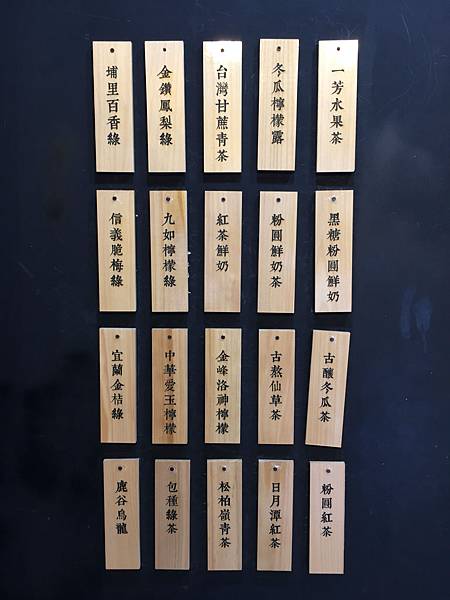 一芳水果茶
冬瓜檸檬露
台灣甘蔗青茶
金鑽鳳梨綠
埔里百香綠
黑糖粉圓鮮奶
粉圓鮮奶茶
紅茶鮮奶
九如檸檬綠
信義脆梅綠
古釀冬瓜茶
古熬仙草茶
金峰洛神檸檬
中華愛玉檸檬
宜蘭金桔綠
粉圓紅茶
日月潭紅茶
松柏嶺青茶
包種綠茶
鹿谷烏龍